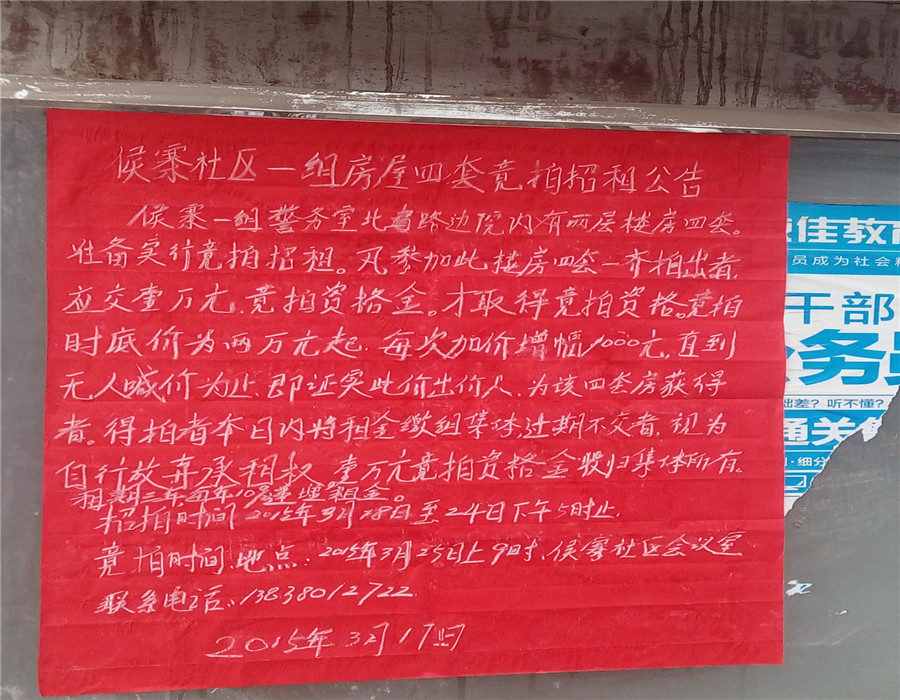 侯寨社区一组房屋四套竞拍招租公告
侯寨一组警务室北马路边院内有两层楼房四套。
准备实行竞拍招租。凡参加此楼房四套一齐拍出者,
应交壹万元,竞拍资格金。才取得竞拍资格。竞拍
时底价为两万元起,每次加价增幅1000元,直到
无人喊价为止,即证实此价出价人,为该四套房获得
者。得拍者本日内将租金缴组集体,过期不交者,视为
自行放弃承租权,壹万元竞拍资格金收归集体所有。
租期三年每年10号整理租金。
招拍时间2015年3月18日至24日下午5时止.
竞拍时间、地点:2015年3月25日上9时,侯寨社区会议室
联系电话:13838012722.
2015年3月17日
佳教育
员成为社会精
干部
公务员
础差?听不懂?
通关
·细分